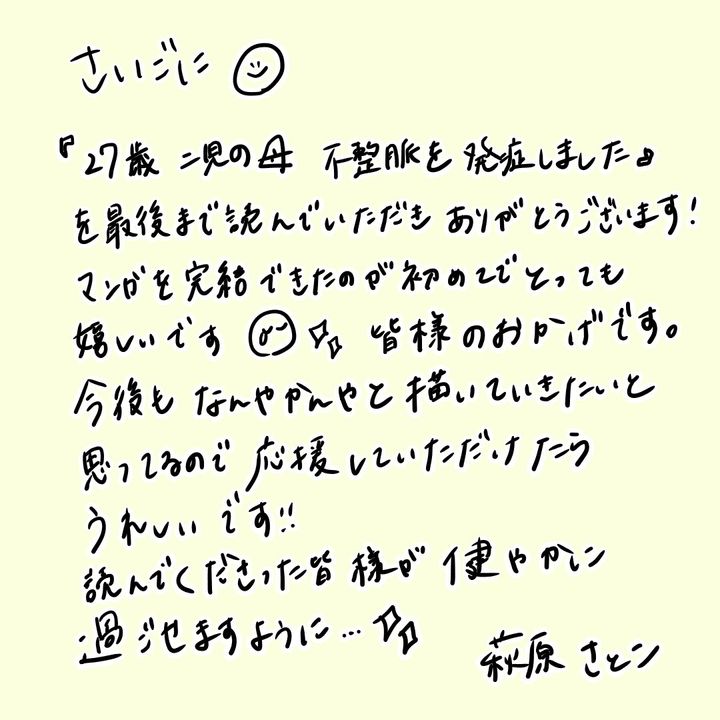 さいごに
『27歳 二児の母 不整脈を発症しました』
を最後まで読んでいただき ありがとうございます!
マンガを完結できたのが初めてでとっても
嬉しいです 皆様のおかげです。
今後も なんやかんやと描いていきたいと
思ってるので応援していただけたら
うれしいです!!
読んでくださった皆様が健やかに
過ごせますように…
萩原さとこ